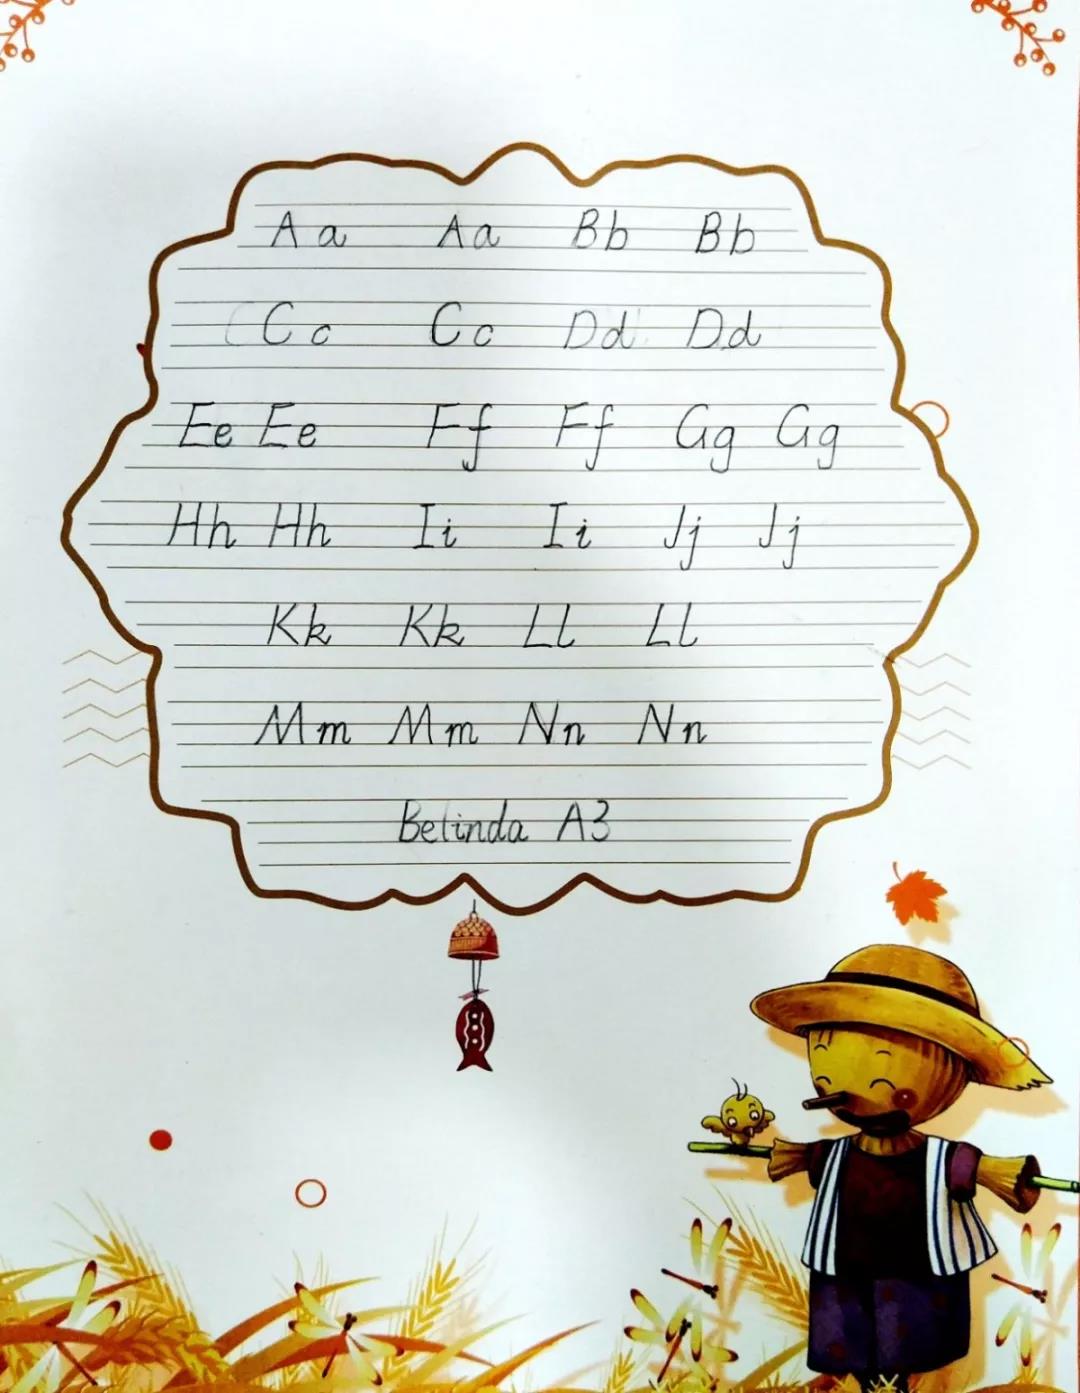 Aa Aa Bb Bb
Cc Cc Dd Dd
Ee Ee Ff Ff Gg Gg
Hh Hh Ii Ii Jj Jj
Kk Kk Ll Ll
Mm Mm Nn Nn
Belinda A3